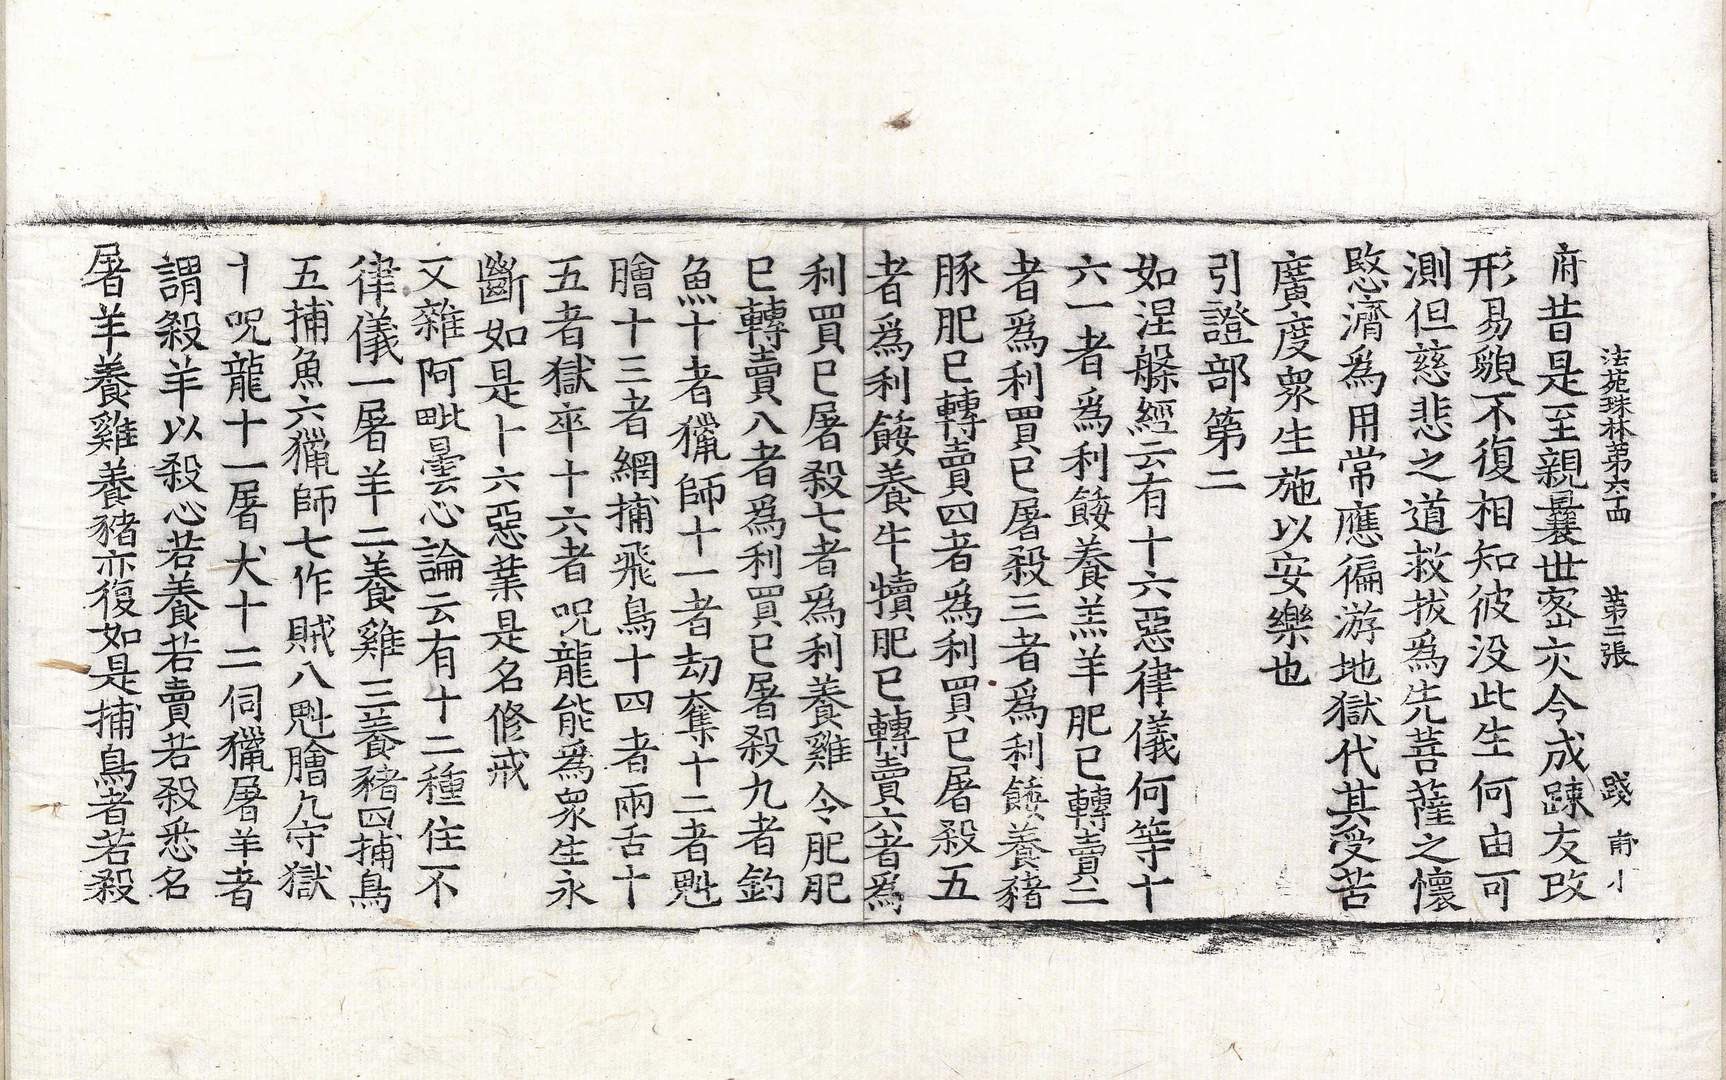 法苑珠林第六四 第二張 踐
府昔是至親曩世密交今成踈友改
形易貌不復相知彼没此生何由可
測但慈悲之道救拔爲先菩薩之懷
愍濟爲用常應徧游地獄代其受苦
廣度衆生施以安樂也
引證部第二
如涅槃經云有十六惡律儀何等十
六一者爲利餧養羔羊肥已轉賣二
者爲利買已屠殺三者爲利餧養豬
豚肥已轉賣四者爲利買已屠殺五
者爲利餧養牛犢肥已轉賣六者爲
利買已屠殺七者爲利養雞令肥肥
已轉賣八者爲利買已屠殺九者釣
魚十者獵師十一者劫奪十二者魁
膾十三者網捕飛鳥十四者兩舌十
五者獄卒十六者呪龍能爲衆生永
斷如是十六惡業是名修戒
又雜阿毗曇心論云有十二種住不
律儀一屠羊二養雞三養豬四捕鳥
五捕魚六獵師七作賊八魁膾九守獄
十呪龍十一屠犬十二伺獵屠羊者
謂殺羊以殺心若養若賣若殺悉名
屠羊養雞養豬亦復如是捕鳥者若殺